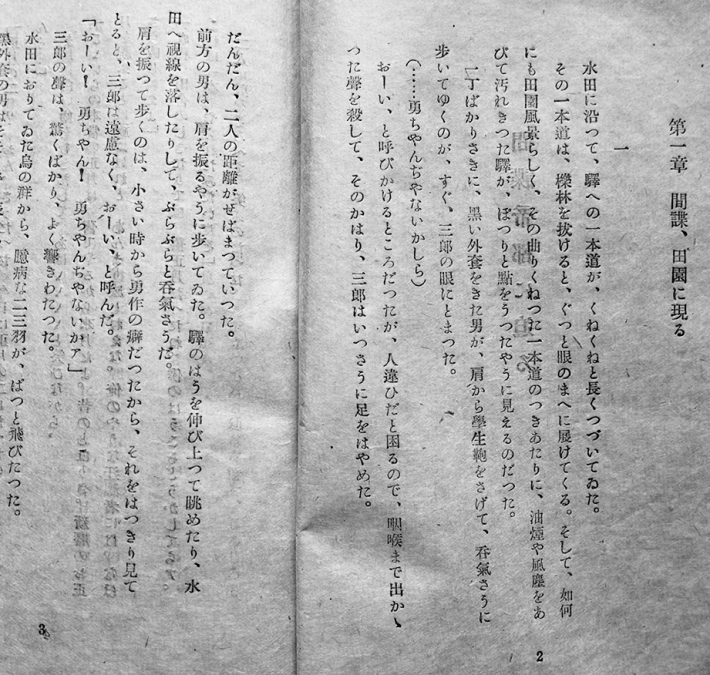 第一章　間諜、田園に現る
一
水田に沿つて、驛への一本道が、くねくねと長くつづいてゐた。
その一本道は、櫟林を拔けると、ぐつと眼のまへに展けてくる。そして、如何
にも田園風景らしく、その曲りくねつた一本道のつきあたりに、油煙や風塵をあ
びて汚れきつた驛が、ぽつりと點をうつたやうに見えるのだつた。
一丁ばかりさきに、黑い外套をきた男が、肩から學生鞄をさげて、呑氣さうに
歩いてゆくのが、すぐ、三郎の眼にとまつた。
（……勇ちやんぢやないかしら）
おーい、と呼びかけるところだつたが、人違ひだと困るので、咽喉まで出かゝ
つた聲を殺して、そのかはり、三郎はいつさうに足をはやめた。
2
だんだん、二人の距離がせばまつていつた。
前方の男は、肩を振るやうに歩いてゐた。驛のはうを伸び上つて眺めたり、水
田へ視線を落したりして、ぶらぶらと呑氣さうだ。
肩を振つて歩くのは、小さい時から勇作の癖だつたから、それをはつきり見て
とると、三郎は遠慮なく、おーい、と呼んだ。
「おーい！　勇ちやん！　勇ちやんぢやないかァ」
三郎の聲は、驚くばかり、よく響きわたつた。
水田におりてゐた鳥の群から、臆病な二三羽が、ぱつと飛びたつた。
黑外套の男は
3